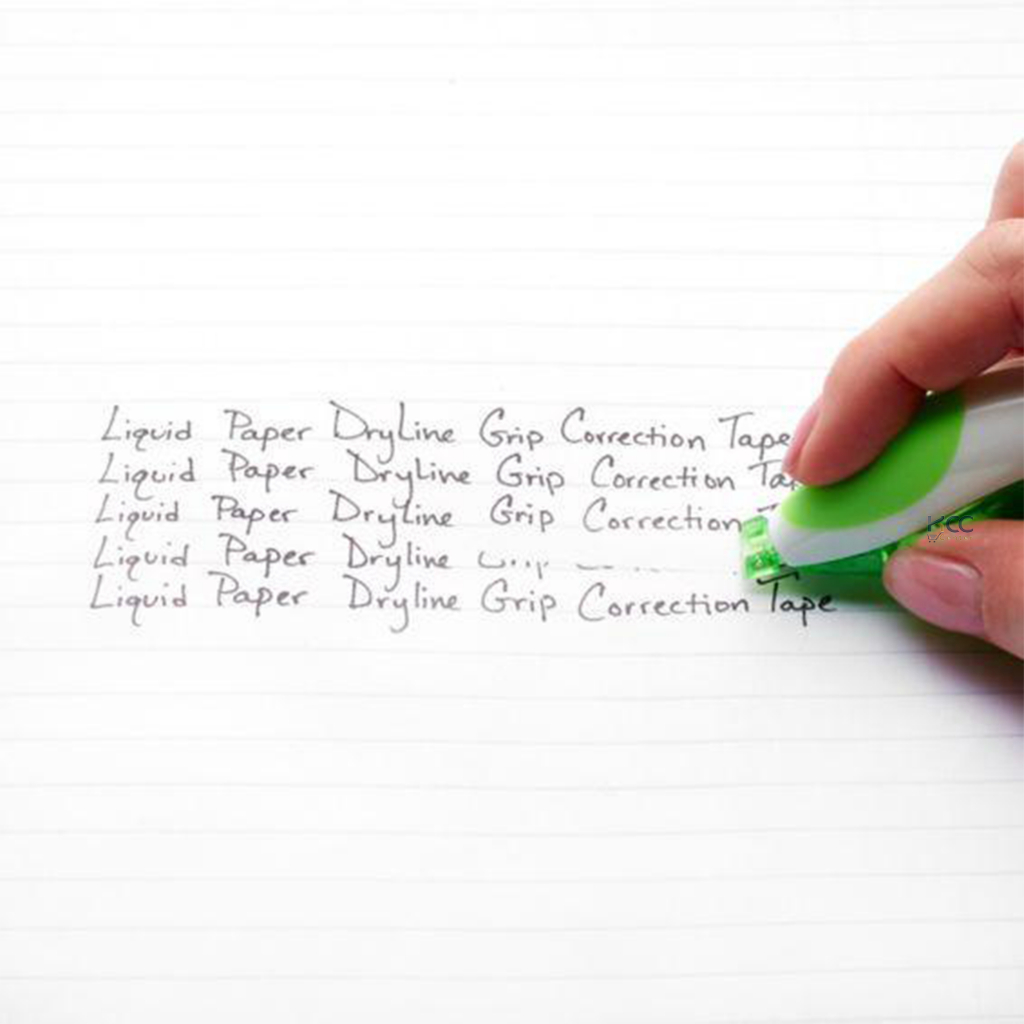 Liquid Paper DryLine Grip Correction Tape
Liquid Paper Dryline Grip Correction
Liquid Paper Dryline Grip Correction
Liquid Paper Dryline
Liquid Paper Dryline Grip Correction Tape